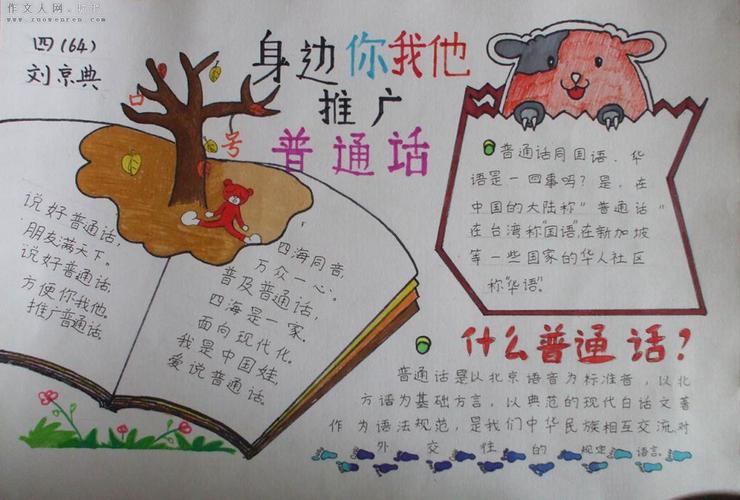 作文人网
www.zuowenren.com
四(64)
刘京典
身边你我他
推广
普通话
口号
说好普通话,
朋友满天下。
说好普通话,
方便你我他。
推广普通话。
四海同音,
万众一心。
普及普通话,
四海是一家。
面向现代化。
我是中国娃,
爱说普通话。
普通话同国语、华
语是一回事吗?是,在
中国的大陆称"普通话"
在台湾称"国语",在新加坡
等一些国家的华人社区
称"华语"。
什么普通话?
普通话是以北京语音为标准音,以北
方话为基础方言,以典范的现代白话文著
作为语法规范,是我们中华民族相互交流.对
外交往的规定语言。